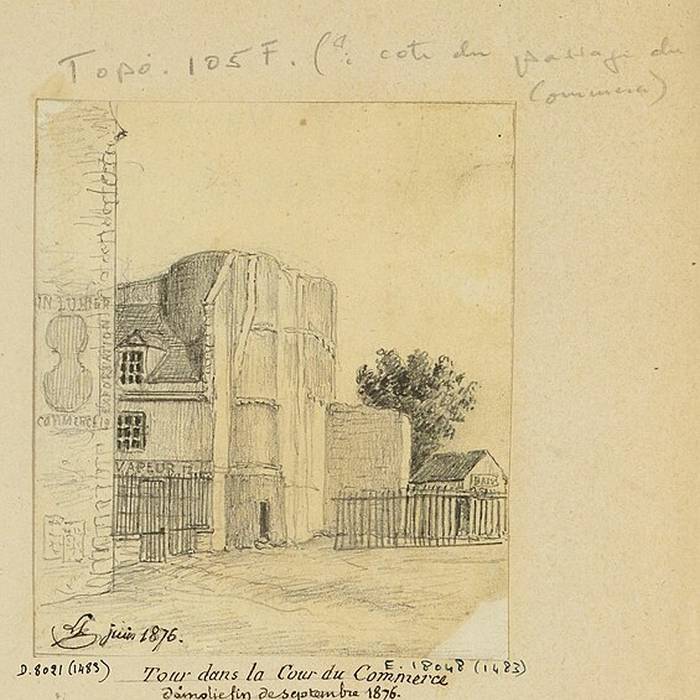 Topo. 105 F. (4: cote du passage du
Commerce)
LUTHIER
COMMERCE
EXPORTATION
VAPEUR
BAINS
juin 1876.
D.8021 (1483)
E. 18048 (1483)
Tour dans la Cour du Commerce
Démolie fin de septembre 1876.